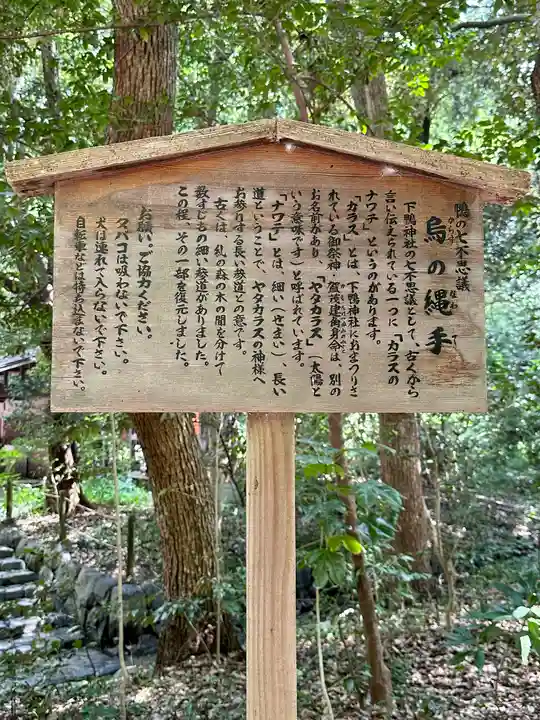 鴨の七不思議
烏の縄手
からす
なわ
て
下鴨神社の七不思議として、古くから
言い伝えられている一つに「カラスの
ナワテ」というのがあります。
「カラス」とは、下鴨神社におまつりさ
れている御祭神・賀茂建角身命は、別の
お名前があり、「ヤタカラス」(太陽と
いう意味です)と呼ばれています。
「ナワテ」とは、細い(せまい)、長い
道ということで、ヤタカラスの神様へ
お参りする長い参道との意です。
古くは、糺の森の木の間を分けて
数すじもの細い参道がありました。
この程、その一部を復元しました。
お願い。ご協力ください。
タバコは吸わないで下さい。
犬は連れて入らないで下さい。
自転車などは持ち込まないで下さい。